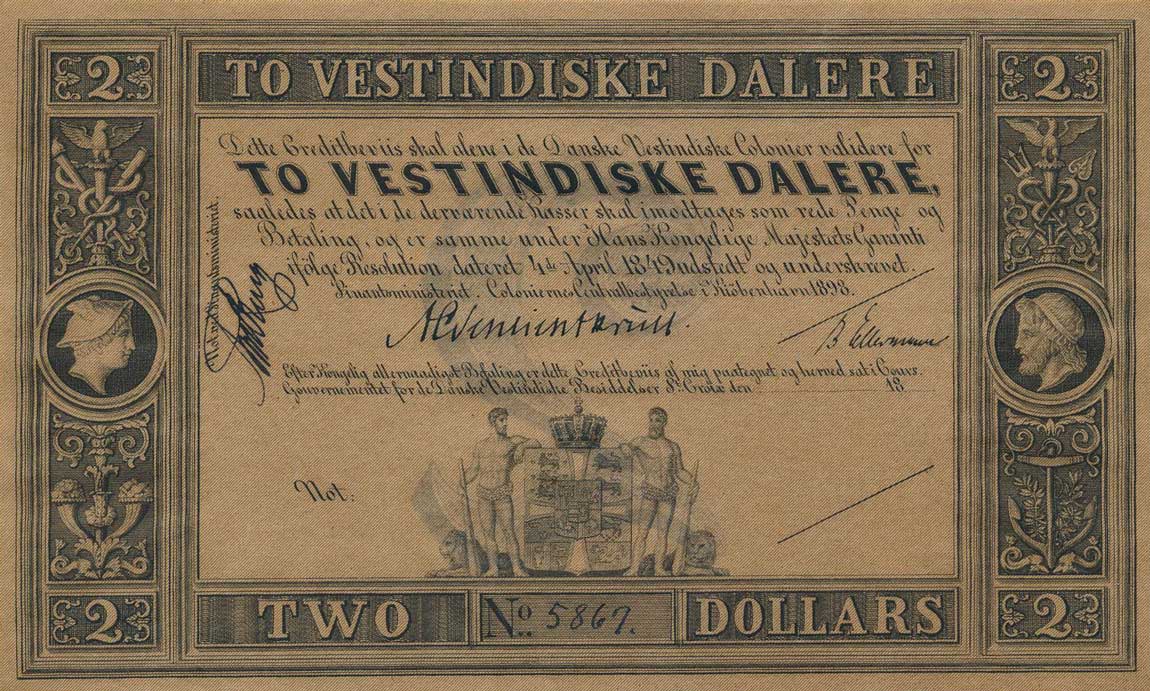 2 TO VESTINDISKE DALERE 2
Dette Creditbeviis skal alene i de Danske Vestindiske Colonier validere for
TO VESTINDISKE DALERE,
saaledes at det i de derværende Kasser skal imodtages som rede Penge og
Betaling, og er samme under Hans Kongelige Majestæts Garanti
ifölge Resolution dateret 4de April 1849 udstedt og underskrevet.
Finantsministeriet. Coloniernes Centralbestyrelse i Kiöbenhavn 1898.
B Ellermann
Efter Kongelig allernaadigst Befaling er dette Creditbeviis af mig paategnet og herved sat i Cours.
Gouvernementet for de Danske Vestindiske Besiddelser St. Croix den 18
Not:
2 TWO No. 5867. DOLLARS 2